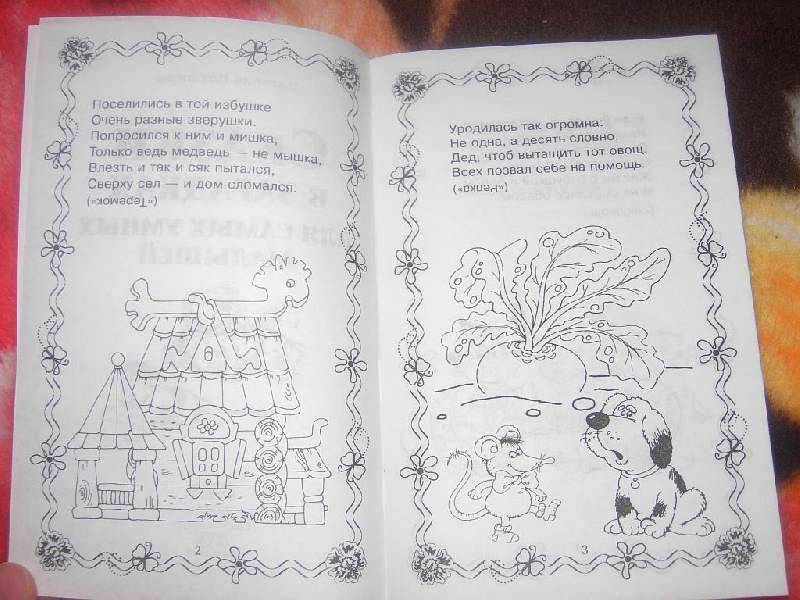 Поселились в той избушке
Очень разные зверушки.
Попросился к ним и мишка,
Только ведь медведь — не мышка,
Влезть и так и сяк пытался,
Сверху сел — и дом сломался.
(«Теремок»)
2
Уродилась так огромна:
Не одна, а десять словно
Дед, чтоб вытащить тот овощ,
Всех позвал себе на помощь.
(«Репка»)
3